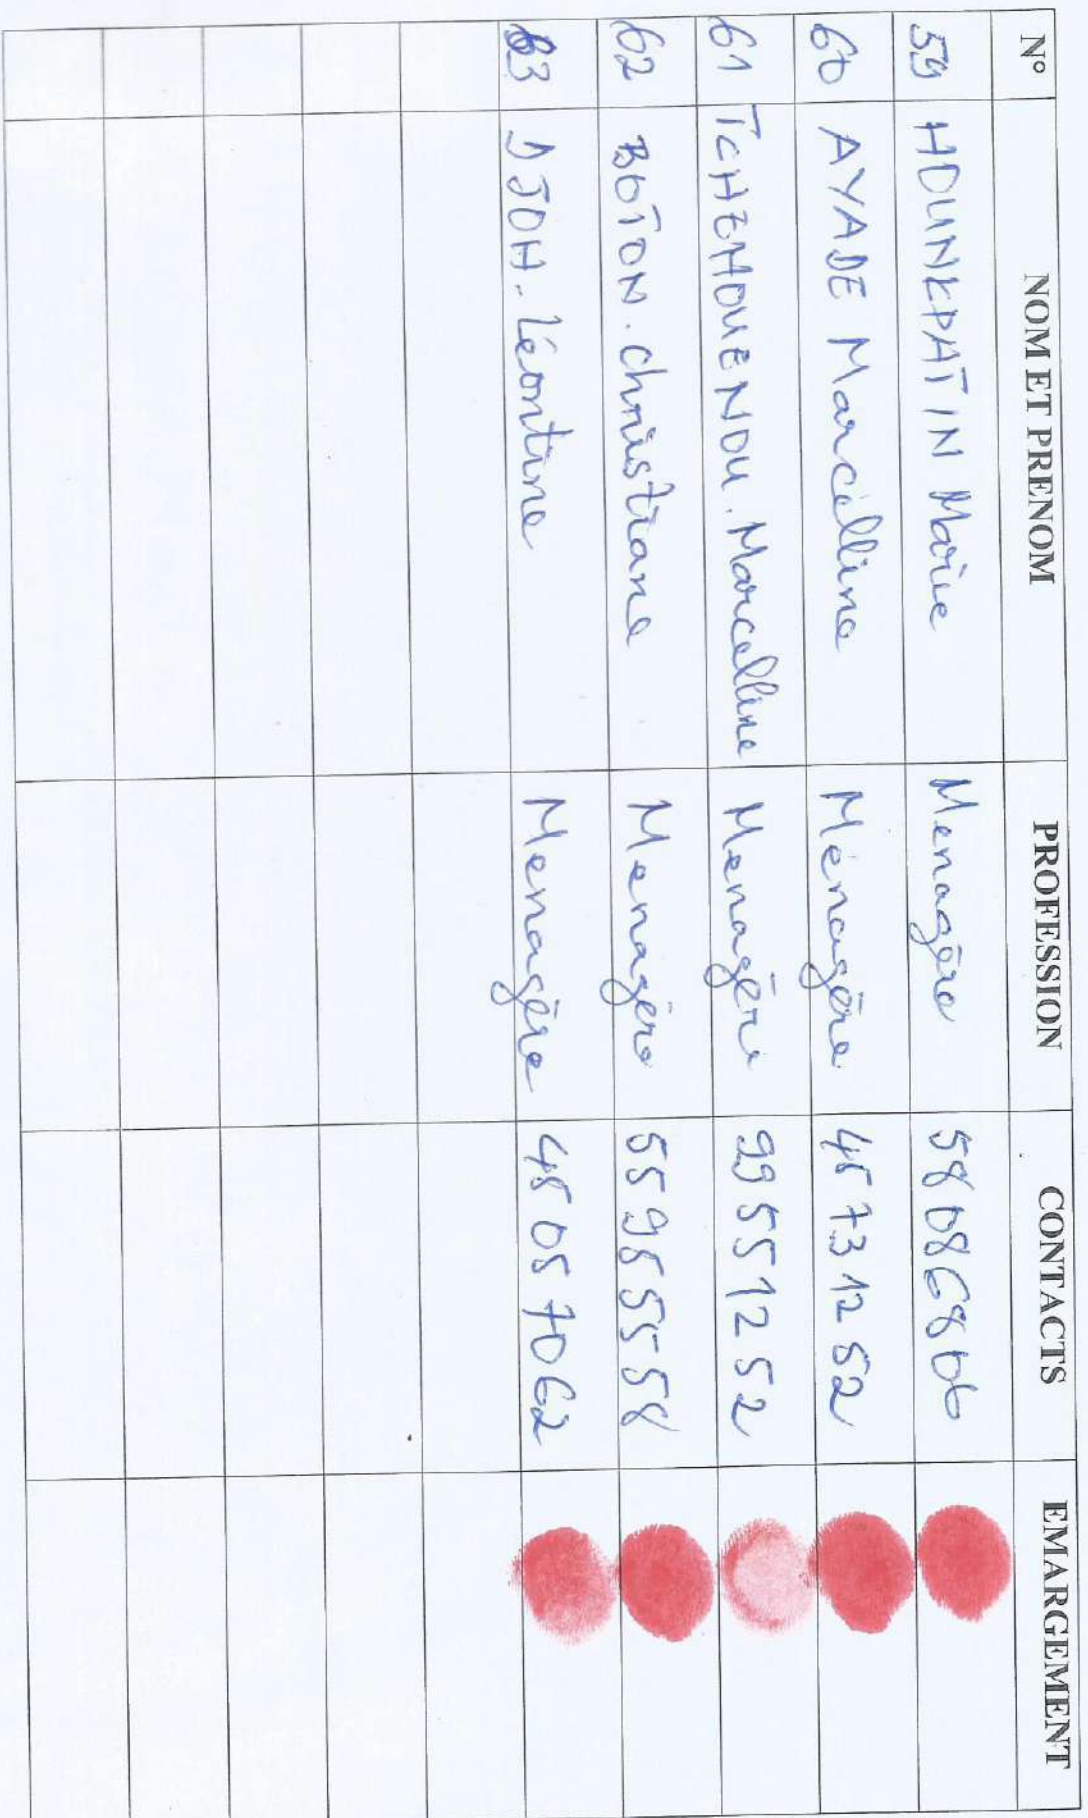 N° NOM ET PRENOM PROFESSION CONTACTS EMARGEMENT
59 HOUNKPATIN Marie Menagère 58086806
60 AYADE Marcelline Ménagère 45731252
61 TCHEHOUENOU. Marcelline Menagère 99551252
62 BOTON. Christiane Menagère 55955558
63 DJOH-Léontine Menagère 45057062